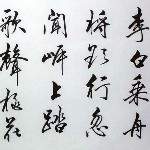 李白乘舟
將欲行忽
聞岸上踏
歌聲桃花